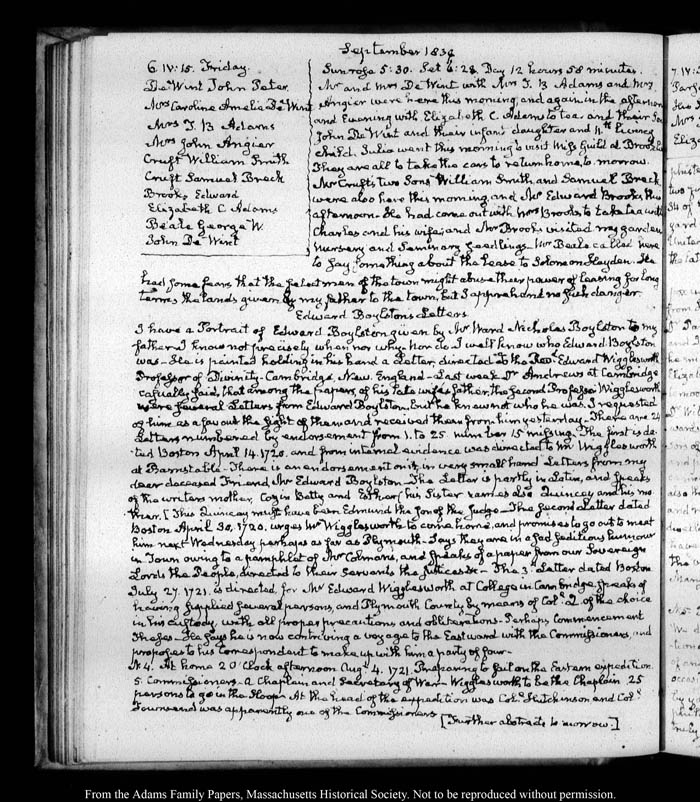 September 1839
6. IV:15. Friday.
De Wint John Peter
Mrs Caroline Amelia De Wint
Mrs T. B Adams
Mrs John Angier
Cruft William Smith
Cruft Samuel Breck
Brooks Edward
Elizabeth C Adams
Beale George W.
John De Wint
Sun rose 5:30. Set 6:28. Day 12 hours 58 minutes.
Mr and Mrs De Wint with Mrs T. B Adams and Mrs
Angier were here this morning and again in the afternoon
and Evening with Elizabeth C. Adams to tea and their Son
John De Wint and their infant daughter and
child. Julia went this morning to visit Miss Guild at Brookline
They are all to take the cars to return home, to-morrow.
Mr Crufts two Sons William Smith and Samuel Breck
were also here this morning, and Mr Edward Brooks this
afternoon. He had come out with Mrs Brooks to take tea with
Charles and his wife; and Mr Brooks visited my garden
Nursery and Seminary Seedlings. Mr Beale called here
to say something about the Lease to Solomon Hayden. He
had some fears that the select men of the town might abuse their power of leasing for long
terms, the lands given by my father to the town, but I apprehend no such danger
Edward Boylston's Letters
I have a Portrait of Edward Boylston given by Mr Ward Nicholas Boylston to my
father I know not precisely when nor why. Nor do I well know who Edward Boylston
was. He is painted holding in his hand a Letter, directed To the Revd. Edward Wigglesworth
Professor of Divinity. Cambridge, New. England. Last week Dr Andrews at Cambridge
casually said, that among the papers of his late wife's father, the second Professor Wigglesworth
were several Letters from Edward Boylston, but he knew not who he was. I requested
of him as a favour the sight of them and received them from him yesterday. There are 24
Letters numbered by endorsement from 1. to 25 number 15 missing. The first is da-
ted Boston April 14. 1720. and from internal evidence was directed to Mr Wigglesworth
at Barnstable. There is an endorsement on it, in very small hand Letters from my
dear deceased Friend Mr Edward Boylston. The Letter is partly in Latin, and speaks
of the writers mother, Cozin Betty and Esther (his Sister names also Quincey and his mo-
ther. [This Quincey must have been Edmund the Son of the Judge. The second Letter dated
Boston April 30, 1720. urges Mr Wigglesworth to come home, and promises to go out to meet
him next Wednesday perhaps as far as Plymouth. Says they are in a sad seditious humour
in Town owing to a pamphlet of Mr Colmans, and speaks of a paper from our Sovereign
Lords the People, directed to their Servants the Justices &c. The 3d Letter dated Boston
July 27. 1721. is directed, for Mr Edward Wigglesworth at College in Cambridge. Speaks of
having supplied several persons, and Plymouth County by means of Col. Q. of the choice
in his custody, with all proper precautions and obliterations. Perhaps Commencement
Theses. He says he is now contriving a voyage to the Eastward with the Commissioners, and
proposes to his Correspondent to make up with him a party of four.
N. 4. At home 2 O'Clock afternoon Augt 4. 1721. Preparing to sail on the Eastern expedition
5 Commissioners. a Chaplain and Secretary of War. Wigglesworth to be the Chaplain 25
persons to go in the Sloop. At the head of the expedition was Col. Hutchinson and Col.
Townsend was apparently one of the Commissioners [Further abstracts to morrow.]
From the Adams Family Papers, Massachusetts Historical Society. Not to be reproduced without permission.